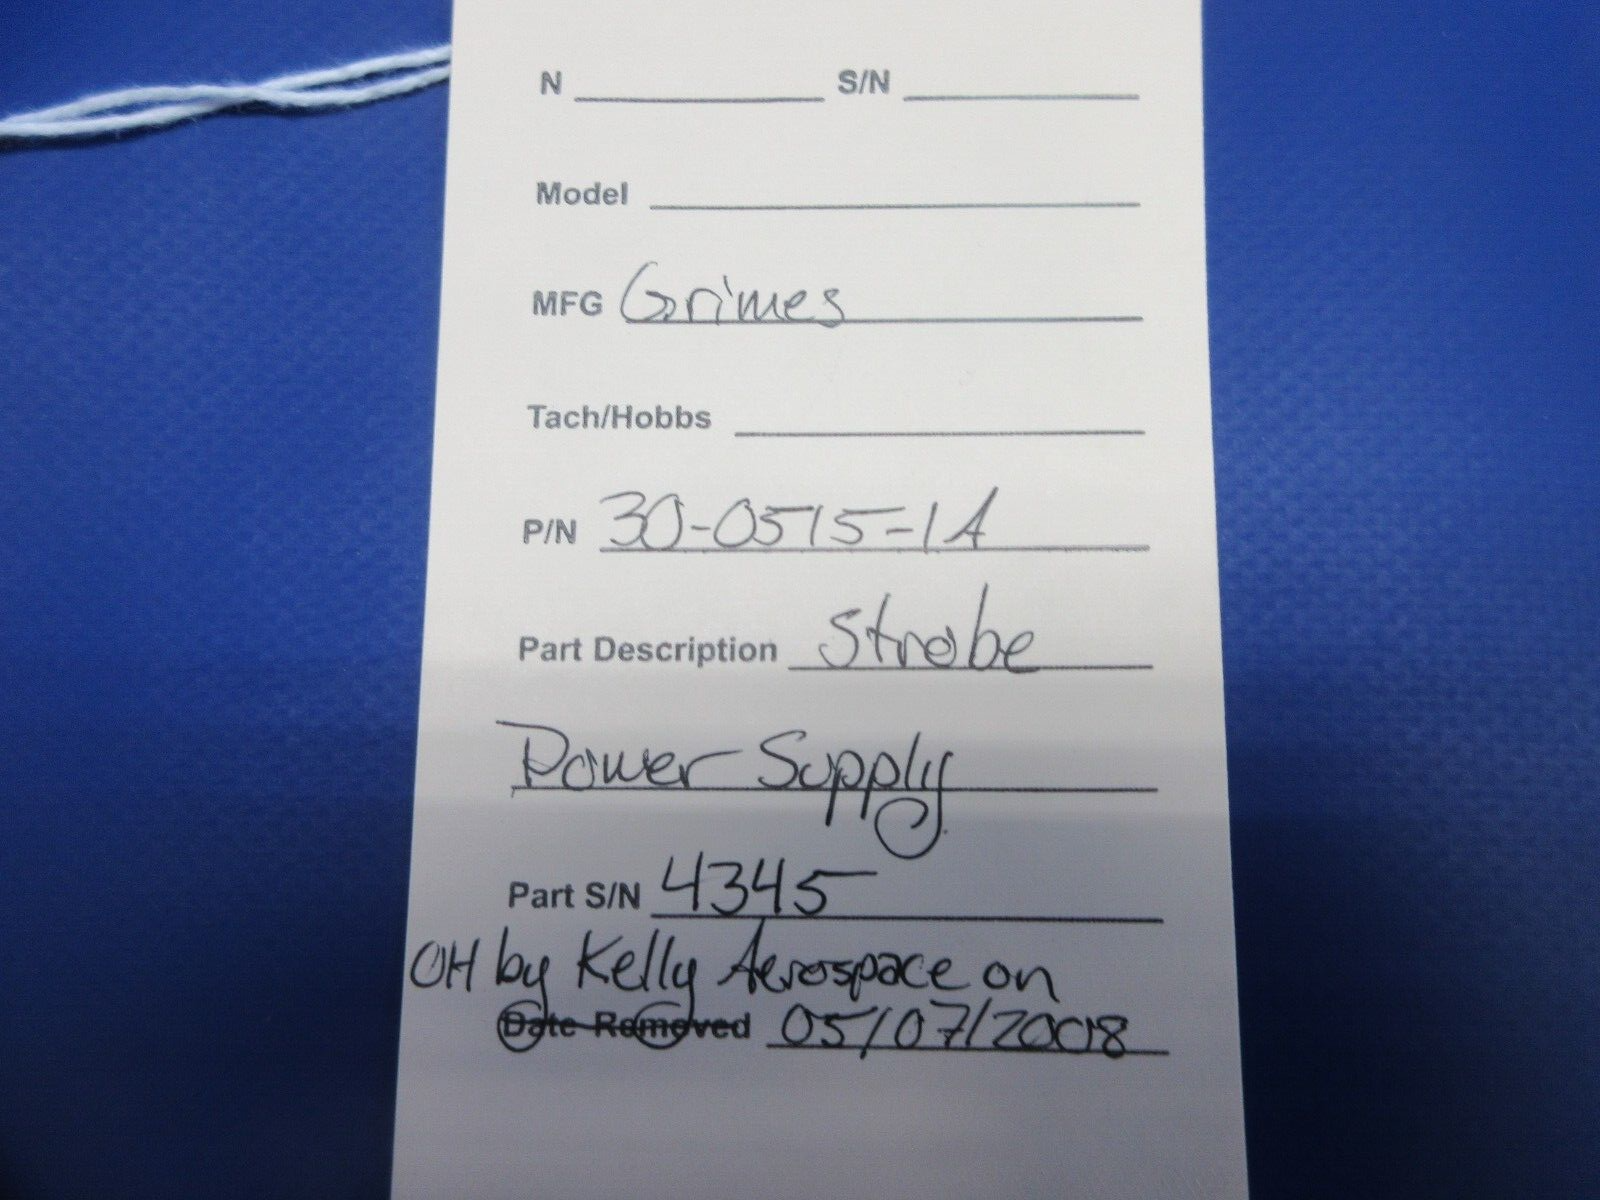 N S/N
Model
MFG Grimes
Tach/Hobbs
P/N 30-0515-1A
Part Description Strobe
Power Supply
Part S/N 4345
OH by Kelly Aerospace on
Date Removed 05/07/2008